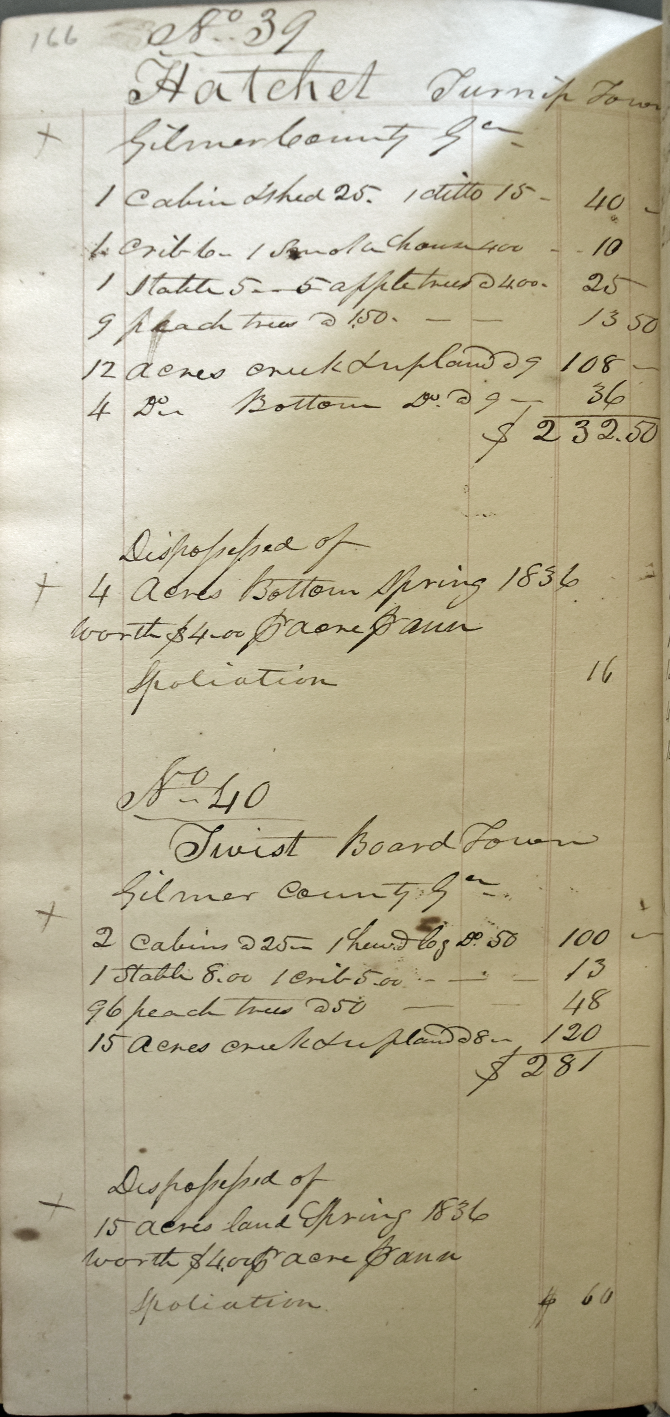 166 No. 39
Hatchet Turnip Town
+ Gilmer County Ga
1 Cabin & shed 25. 1 ditto 15 - 40 -
1 crib 6 - 1 Smoke house 400 - - 10
1 Stable 5 - - 5 apple trees @ 400 - 25
9 peach trees @ 1.50 - — — 13 50
12 acres creek & upland @ 9 108 -
4 Do. Bottom Do. @ 9 - 36
$ 232.50
Dispossessed of
+ 4 Acres Bottom Spring 1836
worth $4.00 ⅌ acre ⅌ ann
Spoliation 16
No. 40
Twist Board Town
Gilmer County Ga
+ 2 Cabins @ 25 - 1 hewd log Do. 50 100 -
1 Stable 8.00 1 crib 5.00 - - - - 13
96 peach trees @ 50 — — 48
15 Acres creek & upland @ 8 - 120
$ 281
Dispossessed of
+ 15 acres land Spring 1836
worth $4.00 ⅌ acre ⅌ ann
Spoliation $ 60